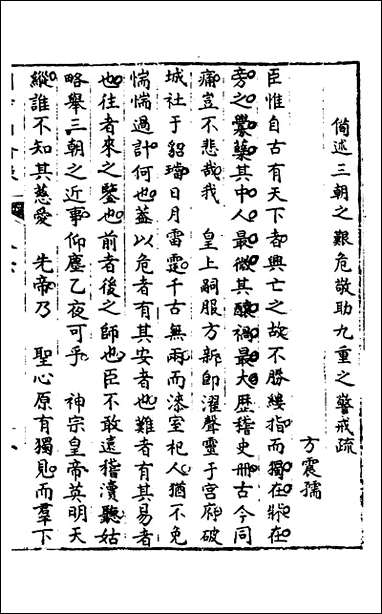 備述三朝之艱危敬助九重之警戒疏
方震孺
臣惟自古有天下者興亡之故不勝縷指而獨在牀在
旁之纍蘖其中人最微其釀禍最大歷稽史冊古今同
痛豈不悲哉我　皇上嗣服方新即濯聲靈于宮府破
城社于貂璫日月雷霆千古無兩而漆室杞人猶不免
惴惴過計何也蓋以危者有其安者也難者有其易者
也往者來之鑒也前者後之師也臣不敢遠稽瀆聽姑
略舉三朝之近事仰塵乙夜可乎　神宗皇帝英明天
縱誰不知其慈愛　先帝乃　聖心原有獨見而羣下